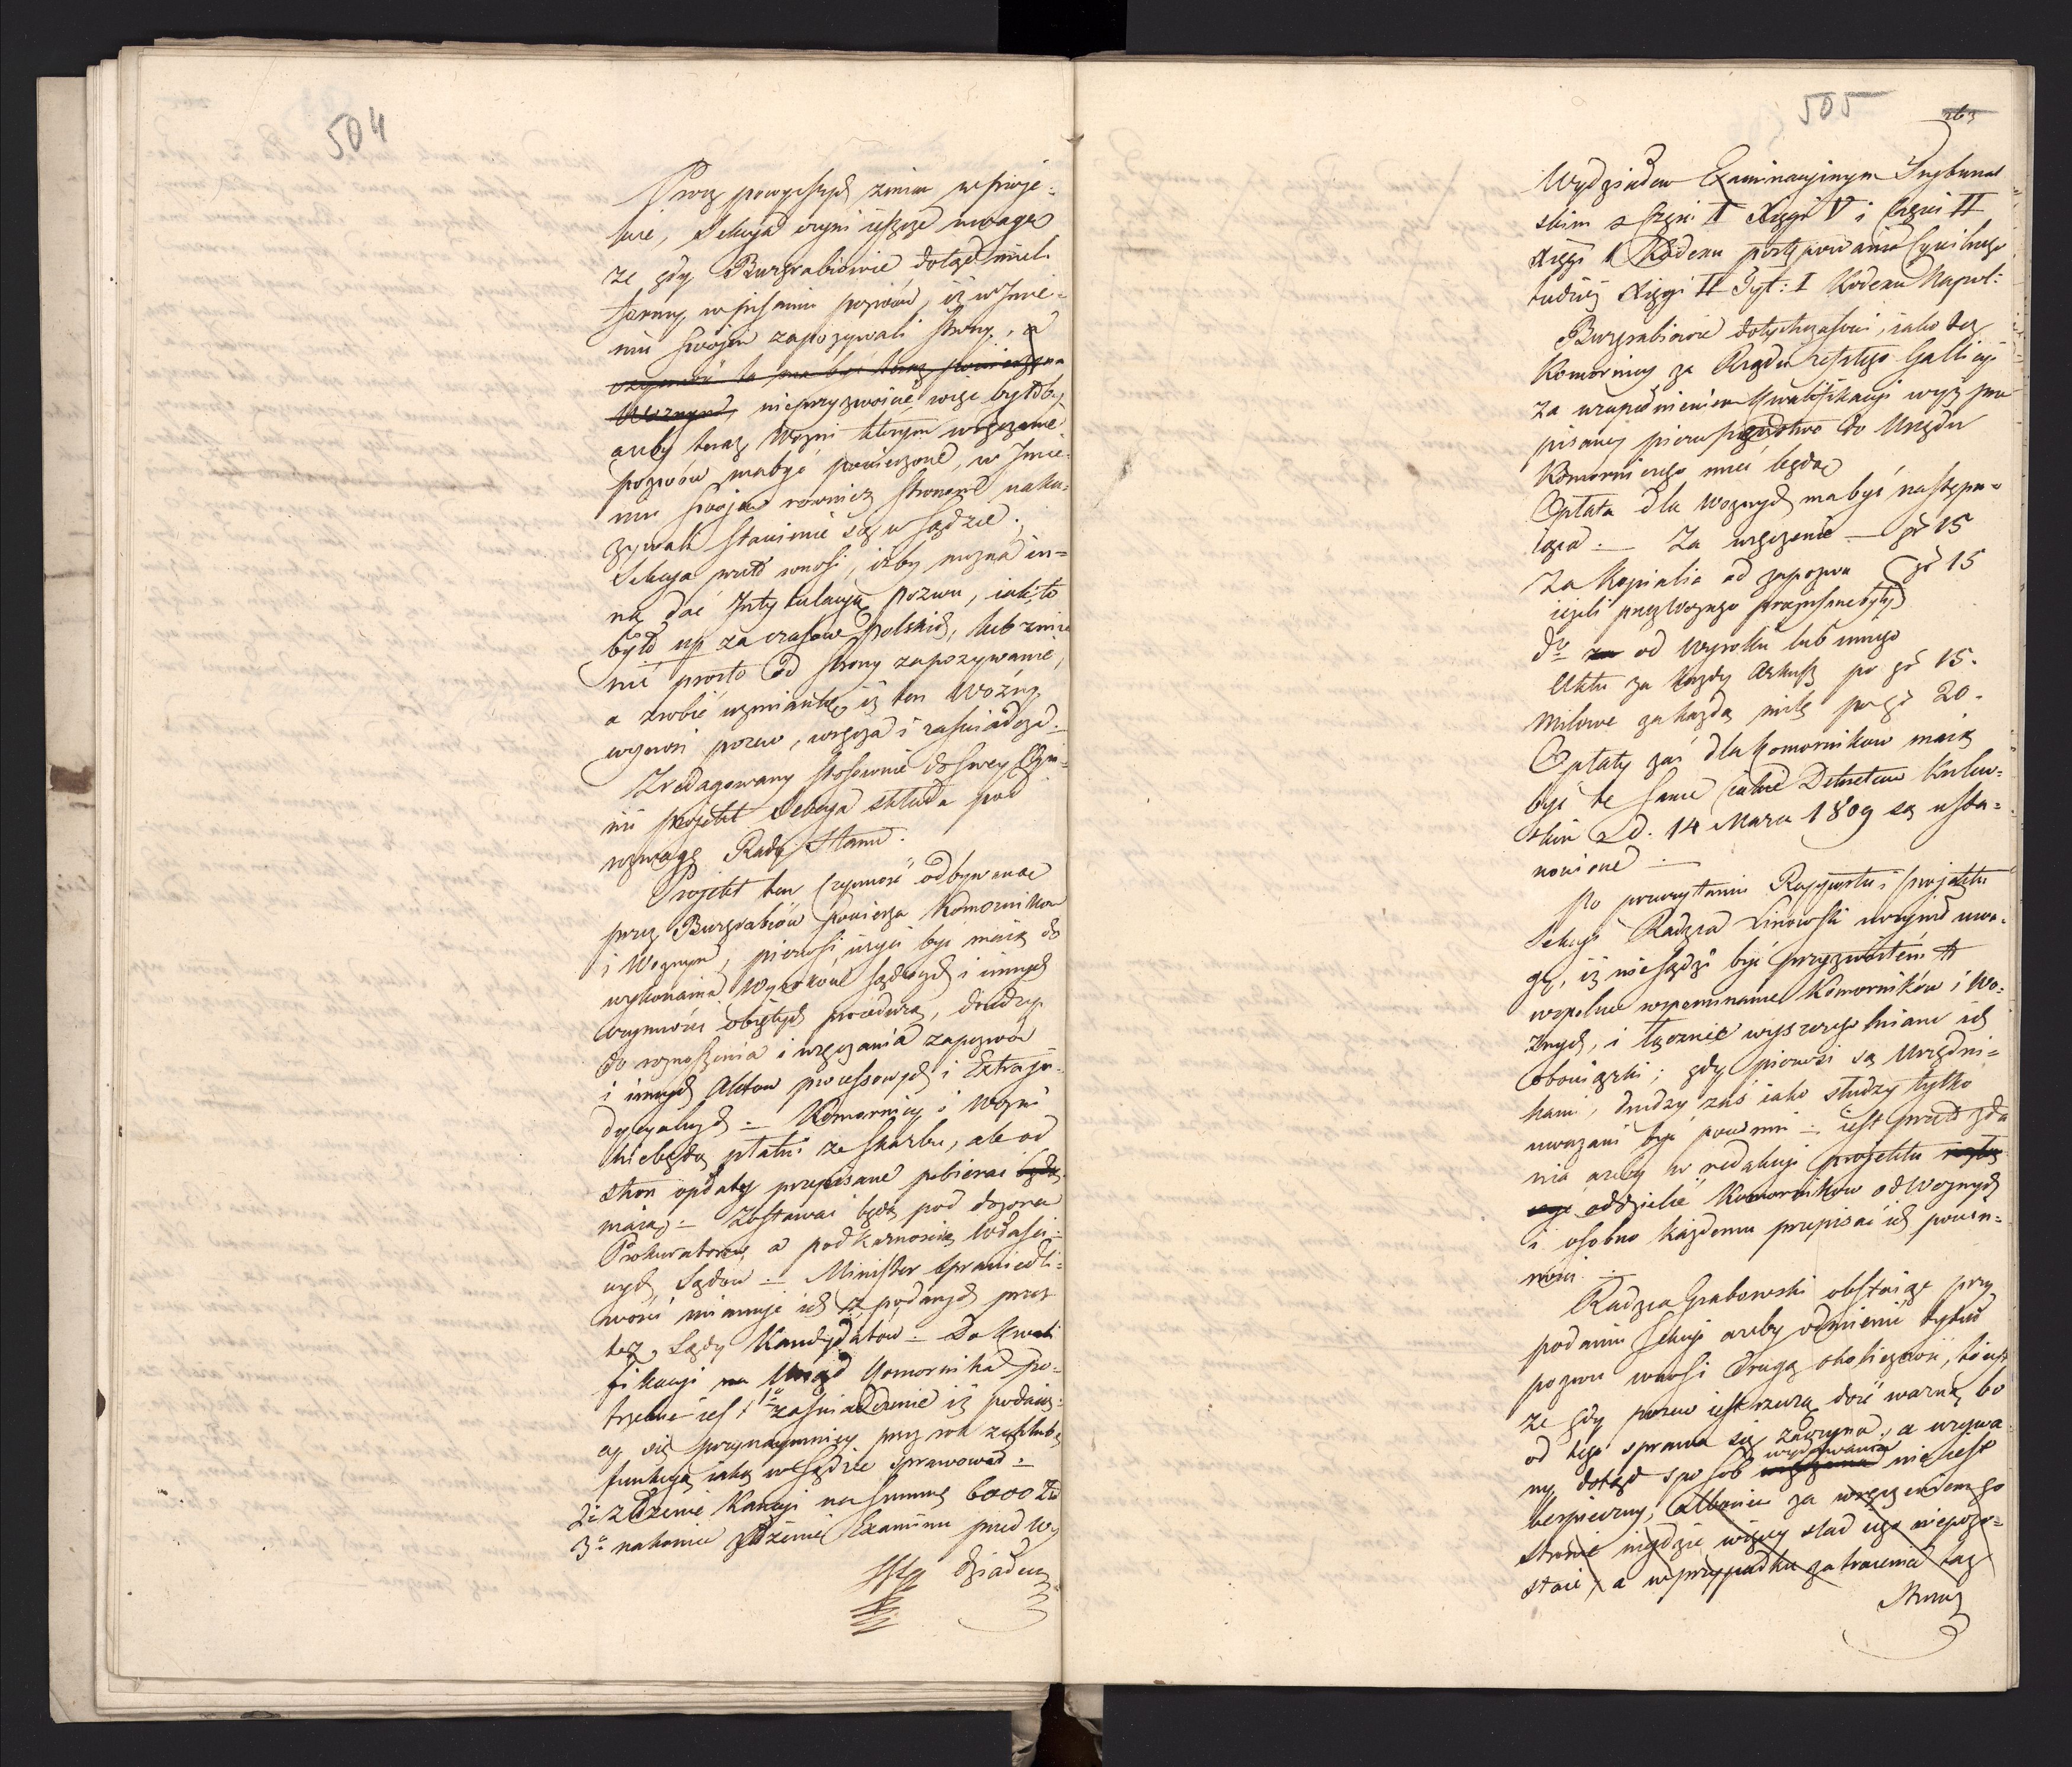 504
Procz powyzszych zmian w proje-
kcie, Sekcya czyni ieszcze uwagę
ze gdy Burgrabiowie dotąd mieli
formę w pisaniu pozwów, iż w Imie-
niu swojem zapozywali strony, a
czynność ta ma być teraz powierzona
Woznym, nieprzyzwoicie więc byłoby
aby teraz Wozni którym wręczanie
pozwów ma być powierzone, w Imie-
niu swojem rownież stronom naka-
zywali stawienie się w Sądzie.
Sekcya przeto wnosi, iżby mozna in-
ną dać Intytulacyą pozwu, iak to
było np za czasow Polskich, lub zmie
nić prosto od strony zapozywanie,
a zrobić wzmiankę iż ten Woźny
wyżwsi pozew, wręcza i zaświadcza.
Zredagowany stosownie do swey Opi-
nii projekt Sekcya składa pod
uwagę Rady Stanu.
Projekt ten Czynność odbywane
przez Burgrabiów powierza Komornikom
i Woznym, pierwsi użyci być maią do
wykonania Wyrokow Sądowych i innych
czynności obiętych procedurą, drudzy
do roznoszenia i wręczania zapozwów
i innych Aktow processowych i Extraju-
dycyalnych - Komornicy i Wozni
nie będą płatni ze Skarbu, ale od
stron opłaty przepisane pobierać będą
maią - Zostawać będą pod dozorem
Prokuratorow, a pod karnością właści-
wych Sądów - Minister Sprawiedli-
wości mianuje ich z podanych przez
też Sądy Kandydatów - Do kwali
fikacyi na Urząd Komornika po-
trzebne iest 1o zaświadczenie iż podaią-
cy się przynaymniey przez rok zchlubą
funkcyą iaką w Sądzie sprawował -
2o złożenie Kaucyi na Summę 6000 Zł
3o nakoniec złożenie Examinu przed Wy
działem
505
263
Wydziałem Examinacyinym Trybunal
skim z Części II Xięgi V i Części II
Xięgi I Kodexu postępowania Cywilnego
tudzież Xięgi II Tyt: I Kodexu Napol:
Burgrabiowie dotychczasowi, iako też
Komornicy za Rządu resztego Gallicyi
za uzupełnieniem Kwalifikacyi wyż prze
pisaney pierwszeństwo do Urzędu
Komorniczego mieć będą
Opłata dla Woznych ma być następu-
iąca - Za wręczenie - gr 15
Za Kopialia od zapozwu gr 15
ieżeli przez Woznego przepisane były
do za od Wyroku lub innego
Aktu za każdy Arkusz po gr 15.
Milowe za każdą milę po gr 20.
Opłaty zaś dla Komornikow maią
być te same iakie Dekretem Krolew-
skim z d. 14 Marca 1809 są usta-
nowione -
Po przeczytaniu Rapportu i projektu
Sekcyi Radzca Linowski uczynił uwa-
gę, iż nie sądzi być przyzwoitém
wspolne wspominanie Komorników i Wo-
znych, i łącznie wyszczegolniani ich
obowiązki; gdy pierwsi są Urzędni-
kami, drudzy zaś iako słudzy tylko
uważani być powinni - iest przeto zda
nia aby w redakcyi projektu
oddzielić Komornikow od Woznych
i osobno każdemu przepisać ich powin-
ności -
Radzca Grabowski obstaiąc przy
podaniu Sekcyi aby odmienić tytuł
pozwu wnosi drugą okoliczność, to iest
ze gdy pozew iest rzeczą dość ważną, bo
od tego sprawa się zaczyna, a używa
ny dotąd sposob wydawania nie iest
bezpieczny, albowiem za wręczeniem go
stronie nigdzie więcey ślad iego niepozo-
staie, a w przypadku zatracenia iaz
Strony